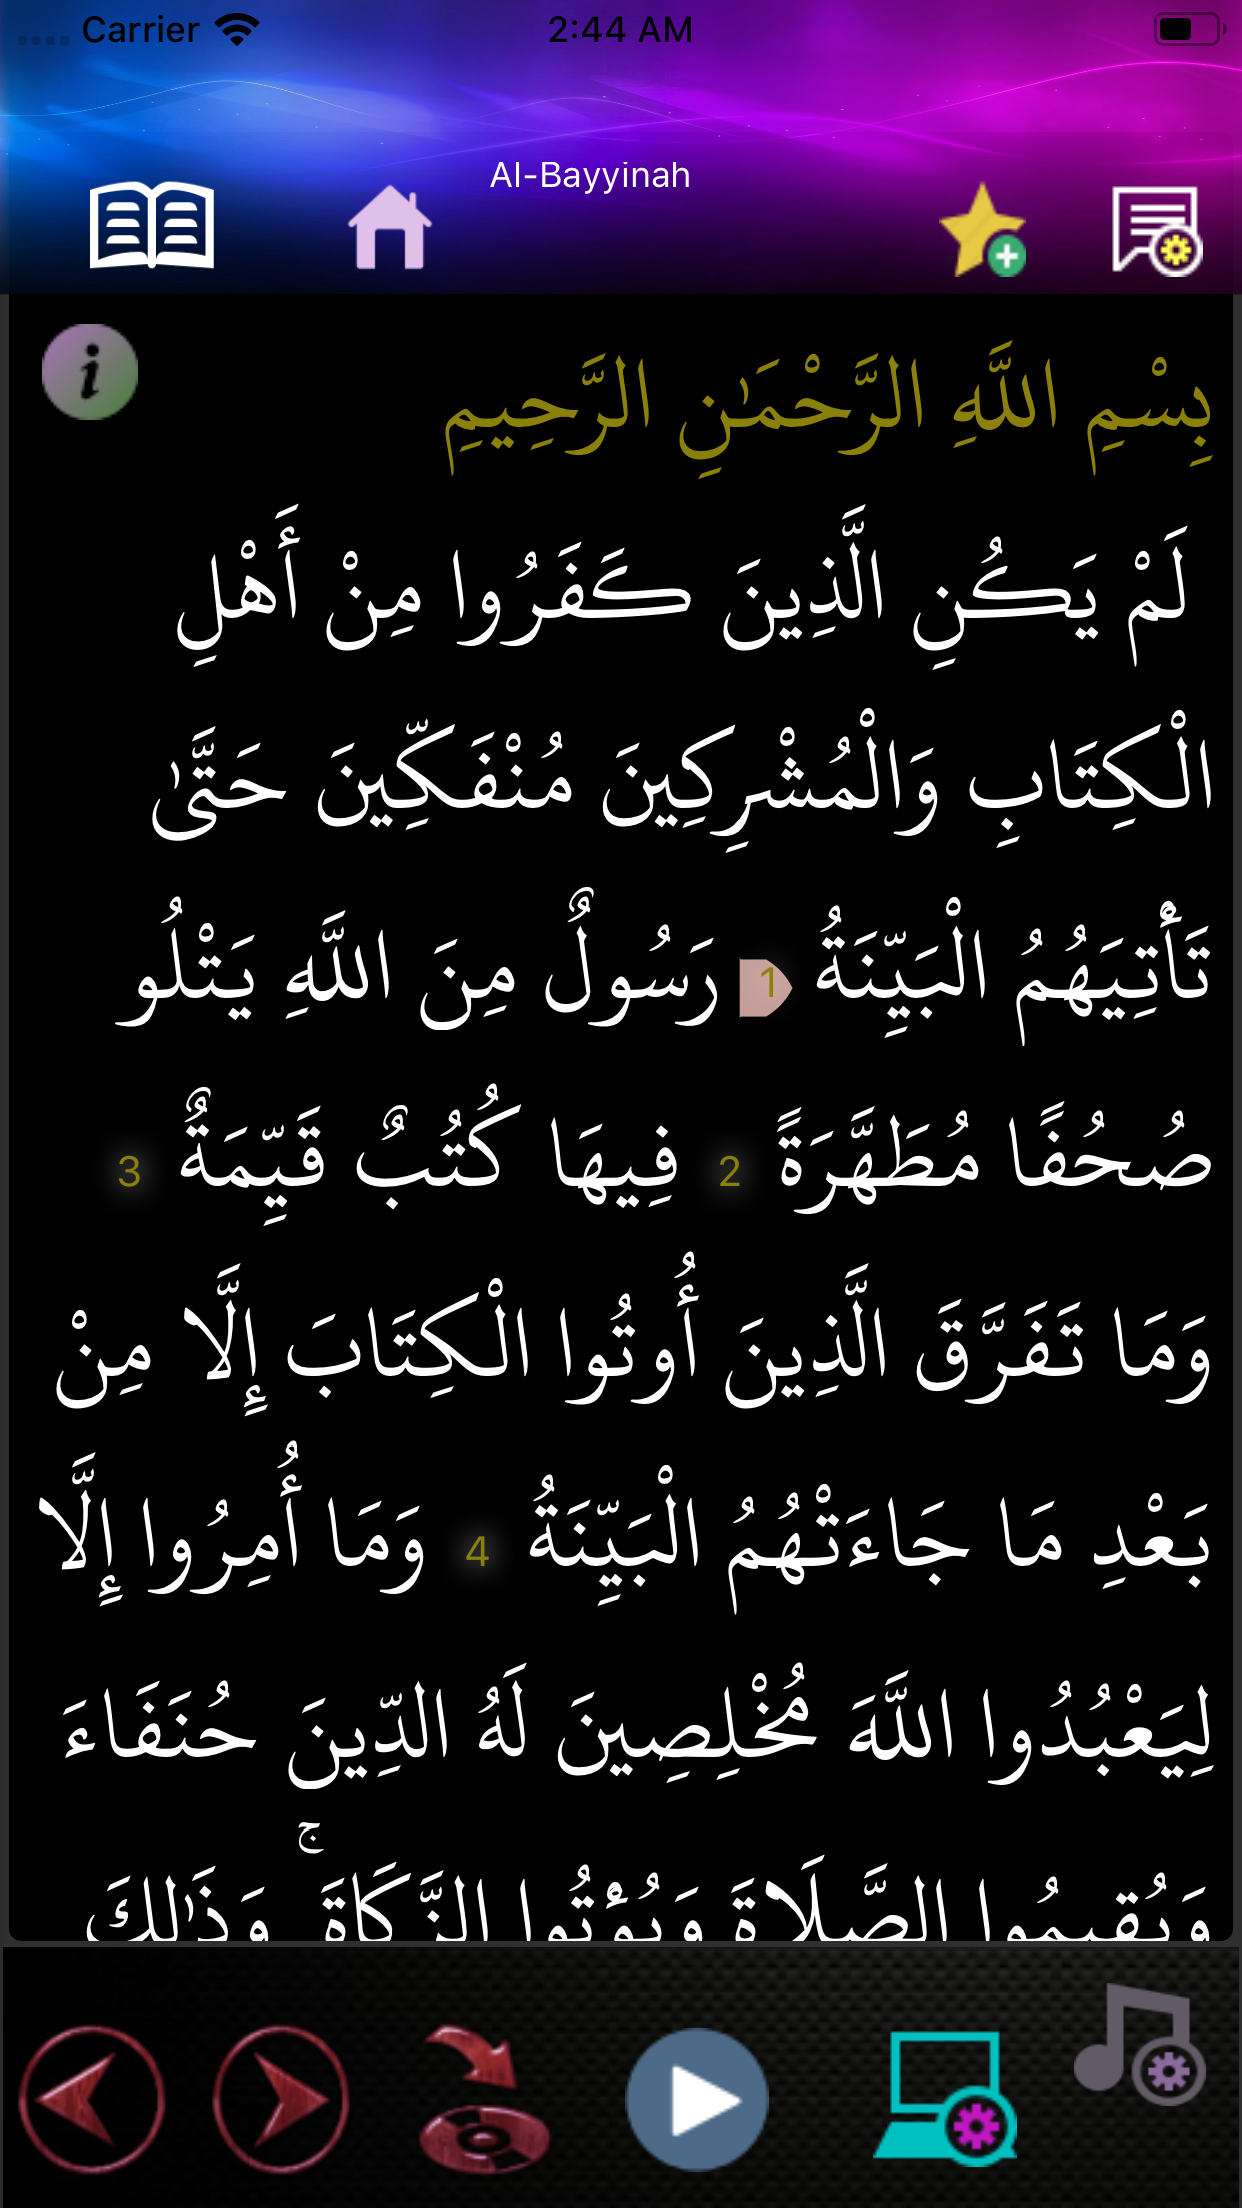 Carrier 2:44 AM
Al-Bayyinah
بِسْمِ اللَّهِ الرَّحْمَٰنِ الرَّحِيمِ
لَمْ يَكُنِ الَّذِينَ كَفَرُوا مِنْ أَهْلِ
الْكِتَابِ وَالْمُشْرِكِينَ مُنْفَكِّينَ حَتَّىٰ
تَأْتِيَهُمُ الْبَيِّنَةُ 1 رَسُولٌ مِنَ اللَّهِ يَتْلُو
صُحُفًا مُطَهَّرَةً 2 فِيهَا كُتُبٌ قَيِّمَةٌ 3
وَمَا تَفَرَّقَ الَّذِينَ أُوتُوا الْكِتَابَ إِلَّا مِنْ
بَعْدِ مَا جَاءَتْهُمُ الْبَيِّنَةُ 4 وَمَا أُمِرُوا إِلَّا
لِيَعْبُدُوا اللَّهَ مُخْلِصِينَ لَهُ الدِّينَ حُنَفَاءَ
وَيُقِيمُوا الصَّلَاةَ وَيُؤْتُوا الزَّكَاةَ ۚ وَذَٰلِكَ